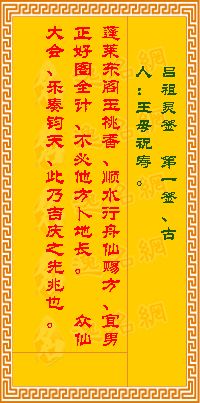 吕祖灵签 第一签、古
人：王母祝寿。
蓬莱东阁玉桃香、顺水行舟仙赐方、宜男
正好图全计、不必他方卜地长。 众仙
大会、乐奏钧天、此乃吉庆之先兆也。